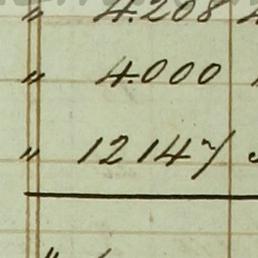 " 4.208
" 4.000
" 12147